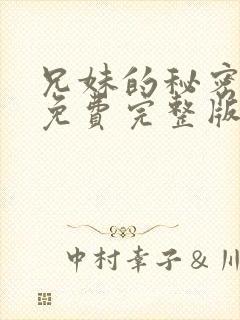 兄妹的秘密
免費完整版
中村幸子&川